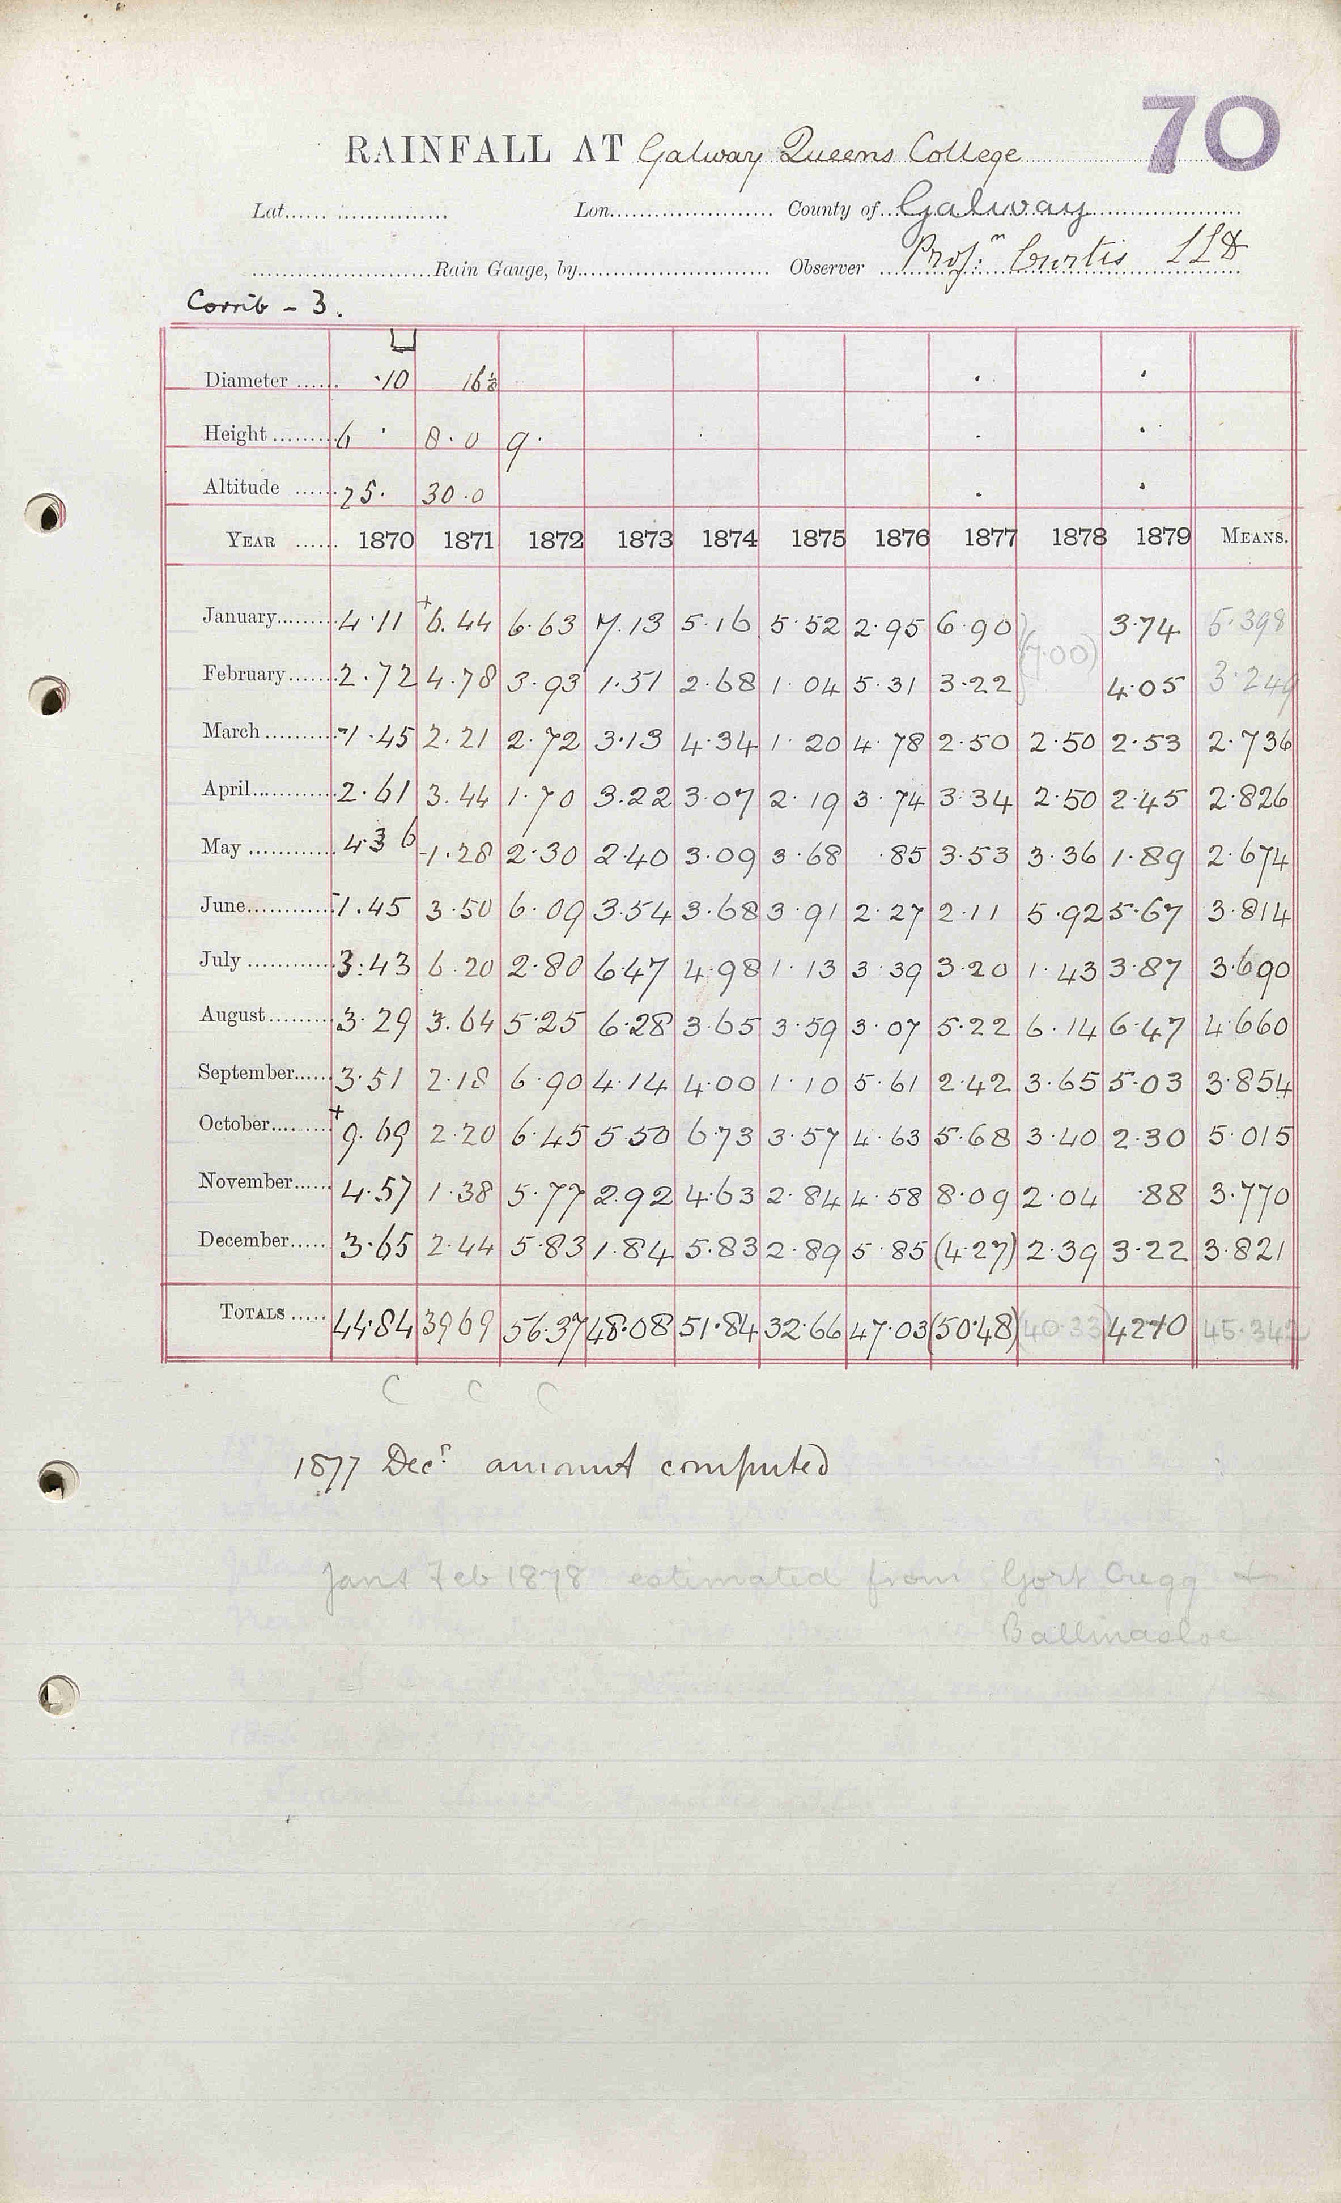 70
RAINFALL AT Galway Queens College
Lat...... ............... Lon....................... County of Galway
Rain Gauge, by.......................... Observer Profr. Curtis LLD
Corrib - 3.
Diameter ...... ·10 16½
Height ......... 6 · 8·0 9·
Altitude ...... 25· 30·0
YEAR ...... 1870 1871 1872 1873 1874 1875 1876 1877 1878 1879 MEANS.
January......... 4·11 +6.44 6·63 7.13 5·16 5·52 2·95 6·90 (7·00) 3·74 5·398
February...... 2.72 4.78 3·93 1.51 2·68 1·04 5·31 3·22 4·05 3·249
March.......... -1.45 2.21 2·72 3·13 4·34 1·20 4·78 2·50 2·50 2·53 2·736
April............ 2·61 3.44 1·70 3.22 3·07 2·19 3·74 3·34 2·50 2·45 2·826
May ............ 4·36 -1·28 2·30 2·40 3·09 3·68 ·85 3·53 3·36 1·89 2·674
June............ -1.45 3·50 6·09 3·54 3·68 3·91 2·27 2·11 5·92 5·67 3·814
July ............ 3·43 6·20 2·80 6·47 4·98 1·13 3·39 3·20 1·43 3·87 3·690
August......... 3·29 3.64 5·25 6·28 3·65 3·59 3·07 5·22 6·14 6·47 4·660
September...... 3·51 2·18 6·90 4·14 4·00 1·10 5·61 2·42 3·65 5·03 3·854
October......... +9.69 2·20 6·45 5·50 6·73 3·57 4·63 5·68 3·40 2·30 5·015
November...... 4·57 1·38 5·77 2·92 4·63 2·84 4·58 8·09 2·04 ·88 3·770
December..... 3·65 2·44 5·83 1·84 5·83 2·89 5·85 (4·27) 2·39 3·22 3·821
TOTALS ..... 44·84 39 69 56·37 48·08 51·84 32·66 47·03 (50·48) (40·33) 42·10 45·342
C C C
1877 Decr amount computed
Jan & Feb 1878 estimated from Gort Cregg &
Ballinasloe